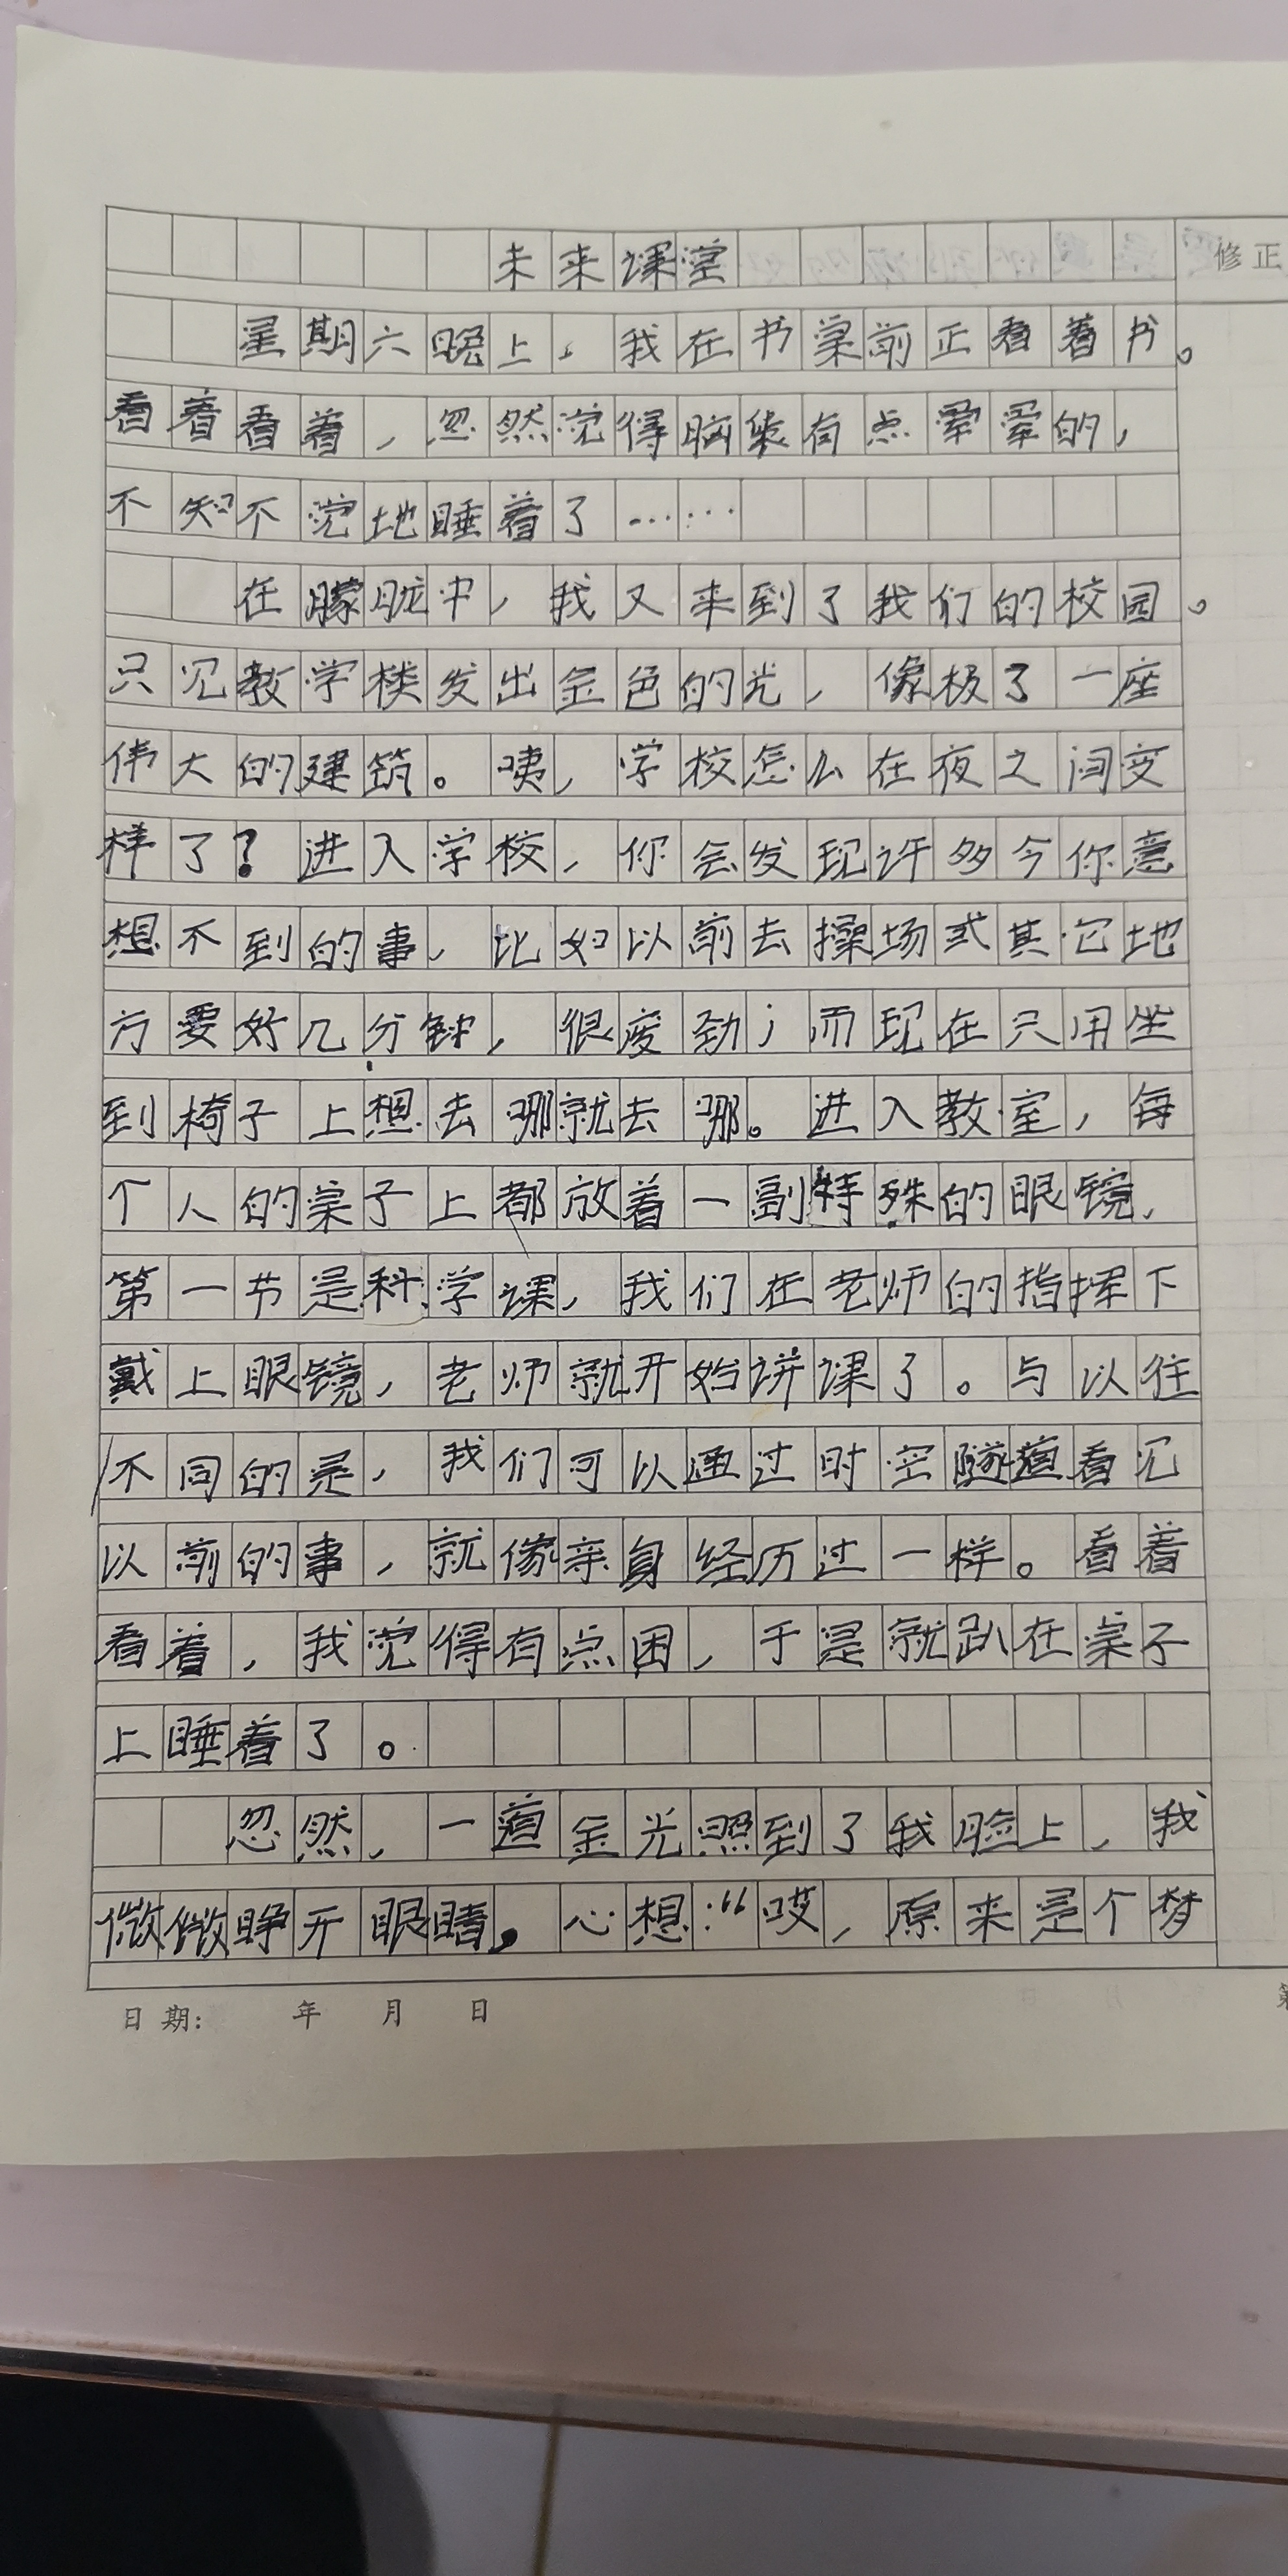 未来课堂
修正
星期六晚上，我在书桌前正看着书。
看着看着，忽然觉得脑袋有点晕晕的，
不知不觉地睡着了……
在朦胧中，我又来到了我们的校园。
只见教学楼发出金色的光，像极了一座
伟大的建筑。咦，学校怎么在夜之间变
样了？进入学校，你会发现许多令你意
想不到的事，比如以前去操场或其它地
方要好几分钟，很废劲；而现在只用坐
到椅子上想去哪就去哪。进入教室，每
个人的桌子上都放着一副特殊的眼镜，
第一节是科学课，我们在老师的指挥下
戴上眼镜，老师就开始讲课了。与以往
不同的是，我们可以通过时空隧道看见
以前的事，就像亲身经历过一样。看着
看着，我觉得有点困，于是就趴在桌子
上睡着了。
忽然，一道金光照到了我脸上，我
微微睁开眼睛，心想：“哎，原来是个梦
日期： 年 月 日